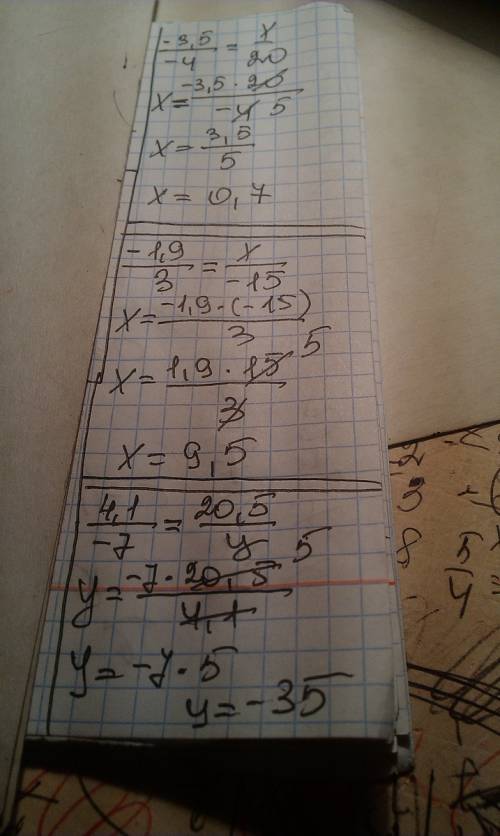 -3,5/-4 = x/20
x = -3,5 · 20/-4 5
x = 3,5/5
x = 0,7
-1,9/3 = x/-15
x = -1,9 · (-15)/3
x = 1,9 · 15/3 5
x = 9,5
4,1/-7 = 20,5/y
y = -7 · 20,5/4,1 5
y = -7 · 5
y = -35